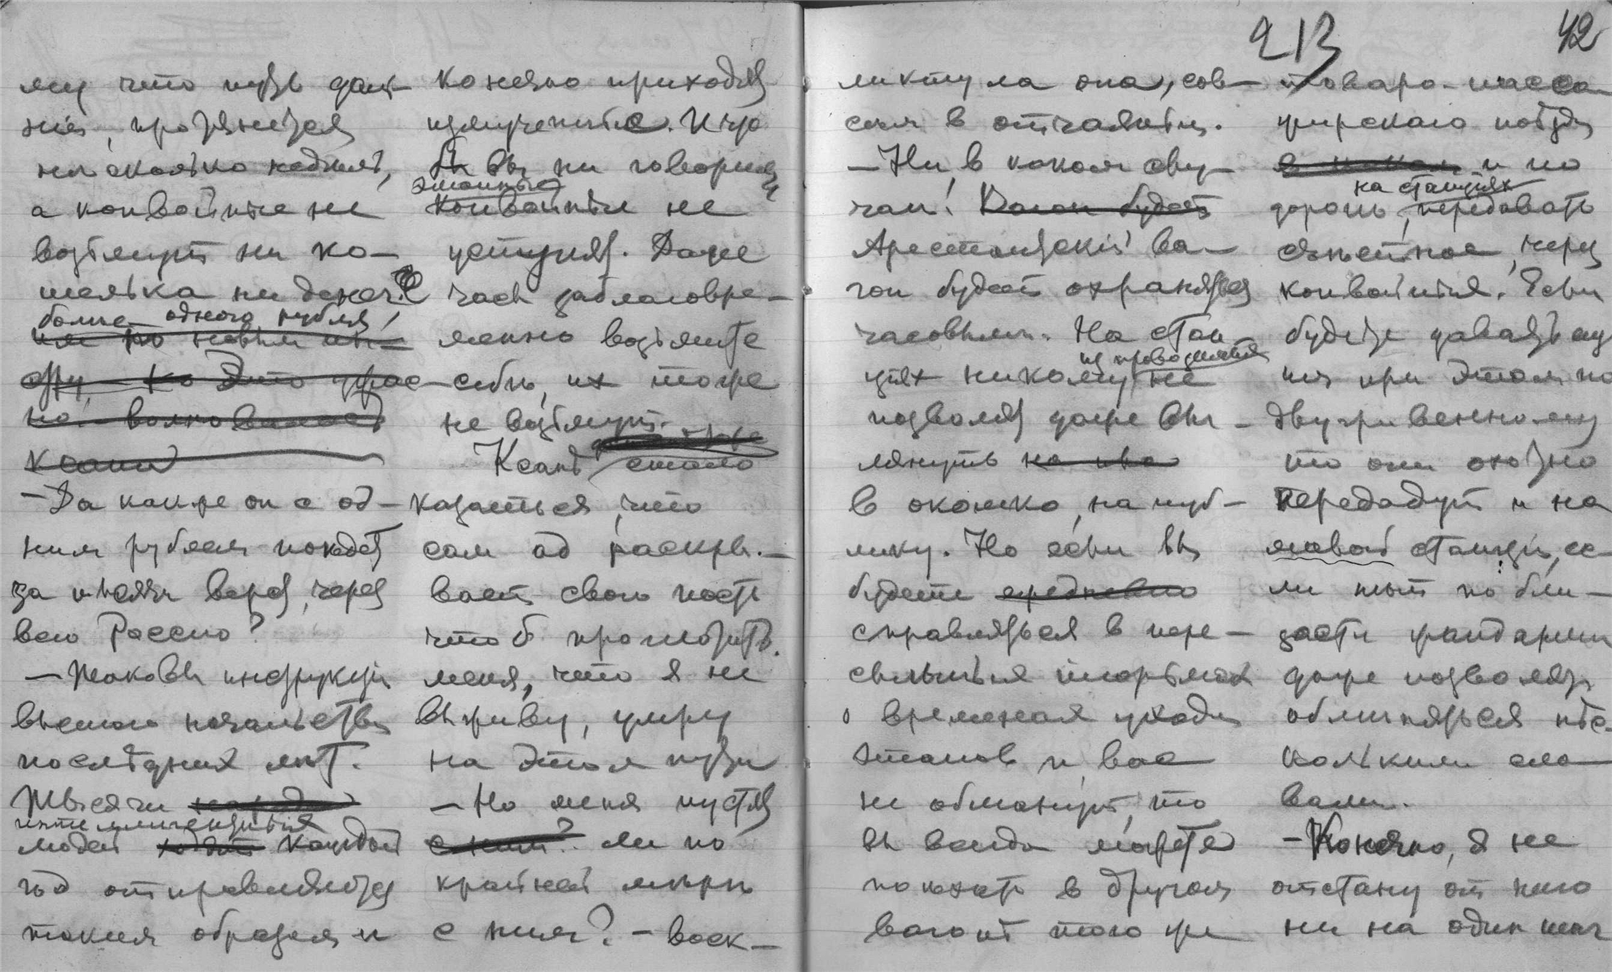 213
42
му что путь даль-
ній, протянется
нѣсколько недѣль,
а конвойные не
возьмутъ ни ко-
шелька ни денегъ
болѣе одного рубля!
Это ужас-
но волновалась
Ксаня
— Да какже он с од-
ним рублем поѣдет
за тысячи верст, через
всю Россію?
— Таковы инструкціи
высшаго начальства
последних лѣт.
Тысячи
интеллигентных
людей каждый
год отправляются
таким образом и
конечно приходят
измученные. И что
бы вы ни говорили,
этапные
конвойные не
уступят. Даже
часы заблаговре-
менно возьмите
себѣ, их тоже
не возьмут.
Ксанѣ стало
казаться, что
сам ад раскры-
вает свою пасть
чтоб проглотить.
меня, что я не
выживу, умру
на этом пути
— Но меня пустят
с ним? ли по
крайней мѣрѣ
с ним? — воск-
ликнула она, сов-
сѣм в отчаяньи.
— Ни в каком слу-
чаѣ! Вагон будет
Арестантскій ва-
гон будет охраняться
часовыми. На стан-
ціях никому не
из провожатых
позволят даже выг-
лянуть
в окошко, на пуб-
лику. Но если вы
будете
справляться в пере-
сыльных тюрьмах
о времени ухода
этапов и вас
не обманут, то
вы всегда можете
поехать в другом
вагонѣ того же
товаро-пасса-
жирскаго поѣзда
и по
на станціях
дороге, передавать
съѣстное, через
конвойных. Если
будете давать
им при этом по
двугривенному
то они охотно
передадут и на
любой станціи, ес-
ли нѣт по бли-
зости жандарма
даже позволят
обмѣняться нѣс-
колькими сло-
вами.
— Конечно, я не
отстану от него
ни на один шаг